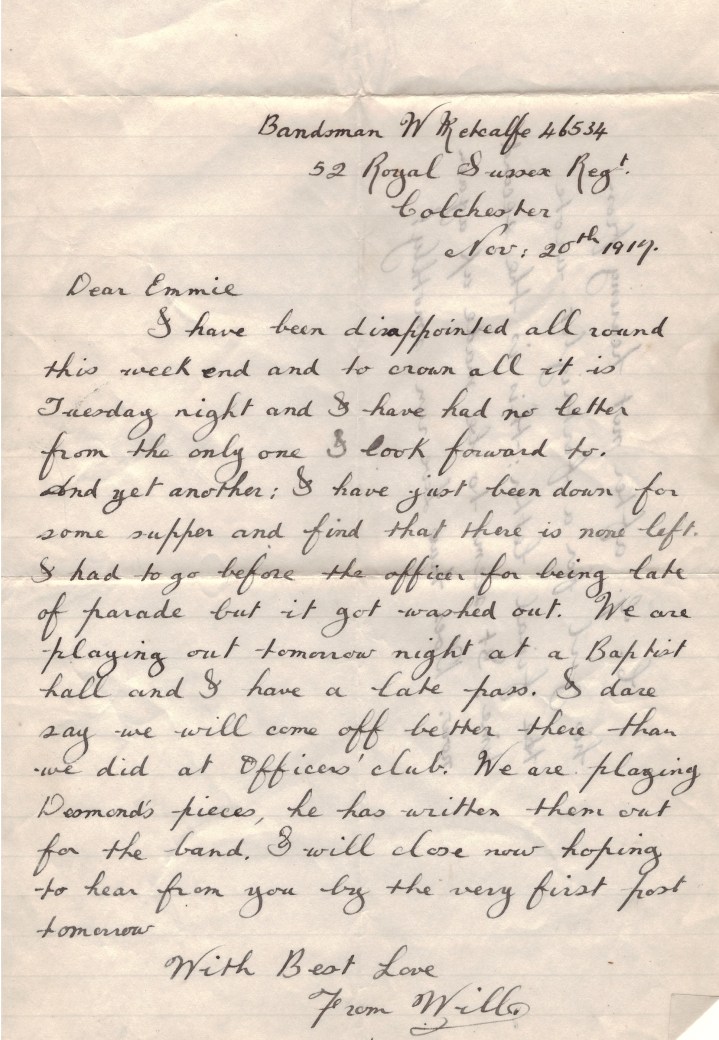 Bandsman W Metcalfe 46534
52 Royal Sussex Regt.
Colchester
Nov: 20th 1917.
Dear Emmie
I have been disappointed all round
this week end and to crown all it is
Tuesday night and I have had no letter
from the only one I look forward to.
And yet another: I have just been down for
some supper and find that there is none left.
I had to go before the officer for being late
of parade but it got washed out. We are
playing out tomorrow night at a Baptist
hall and I have a late pass. I dare
say we will come off better there than
we did at Officers' club. We are playing
Desmond's pieces, he has written them out
for the band. I will close now hoping
to hear from you by the very first post
tomorrow
With Best Love
From Will